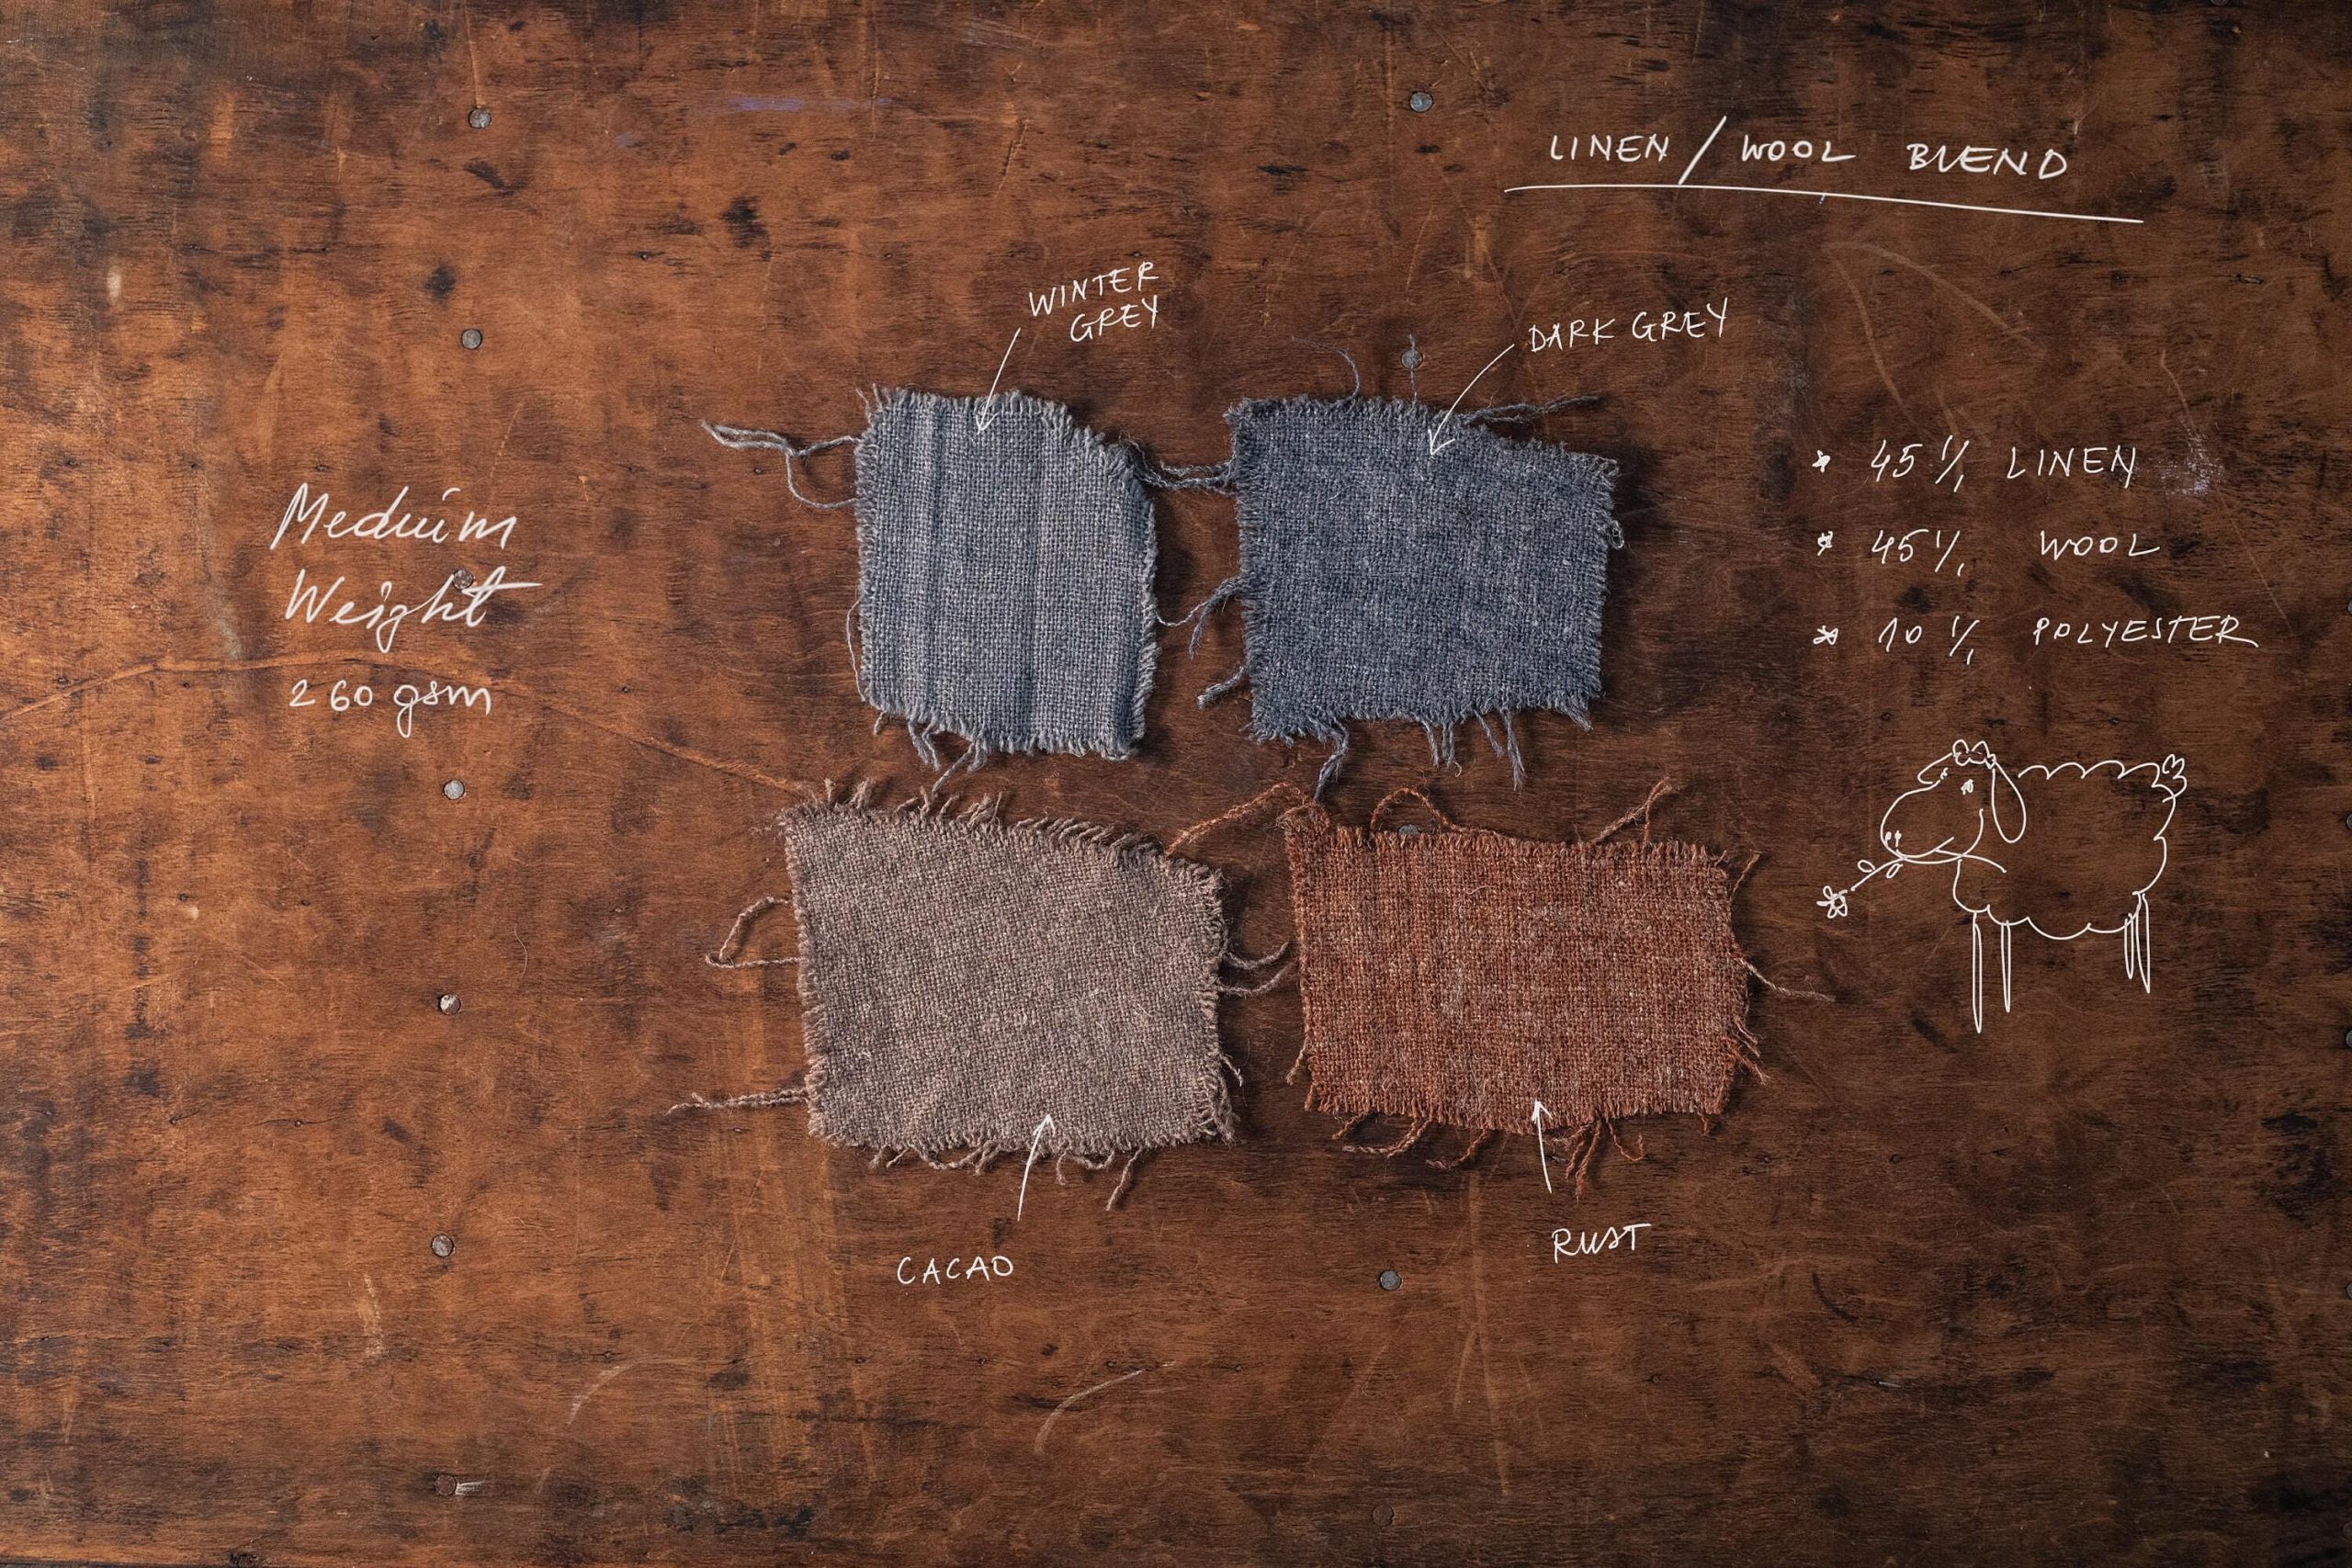 LINEN / WOOL BLEND
WINTER
GREY
DARK GREY
Medium
Weight
260 gsm
* 45% LINEN
* 45% WOOL
* 10% POLYESTER
CACAO
RUST